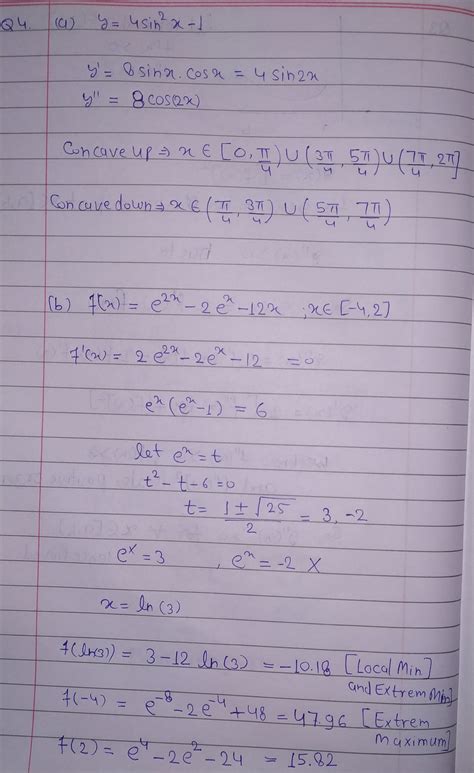 Q4. (a) y = 4sin²x - 1
y' = 8sinx.cosx = 4sin2x
y'' = 8cos(2x)
Concave up ⇒ x ∈ [0, π/4) ∪ (3π/4, 5π/4) ∪ (7π/4, 2π]
Concave down ⇒ x ∈ (π/4, 3π/4) ∪ (5π/4, 7π/4)
(b) f(x) = e^{2x} - 2e^x - 12x ; x ∈ [-4,2]
f'(x) = 2e^{2x} - 2e^x - 12 = 0
e^x(e^x - 1) = 6
let e^x = t
t² - t - 6 = 0
t = (1 ± √25)/2 = 3, -2
e^x = 3 , e^x = -2 X
x = ln(3)
f(ln(3)) = 3 - 12 ln(3) = -10.18 [Local Min
and Extrem Min]
f(-4) = e^{-8} - 2e^{-4} + 48 = 47.96 [Extrem
Maximum]
f(2) = e^4 - 2e^2 - 24 = 15.82